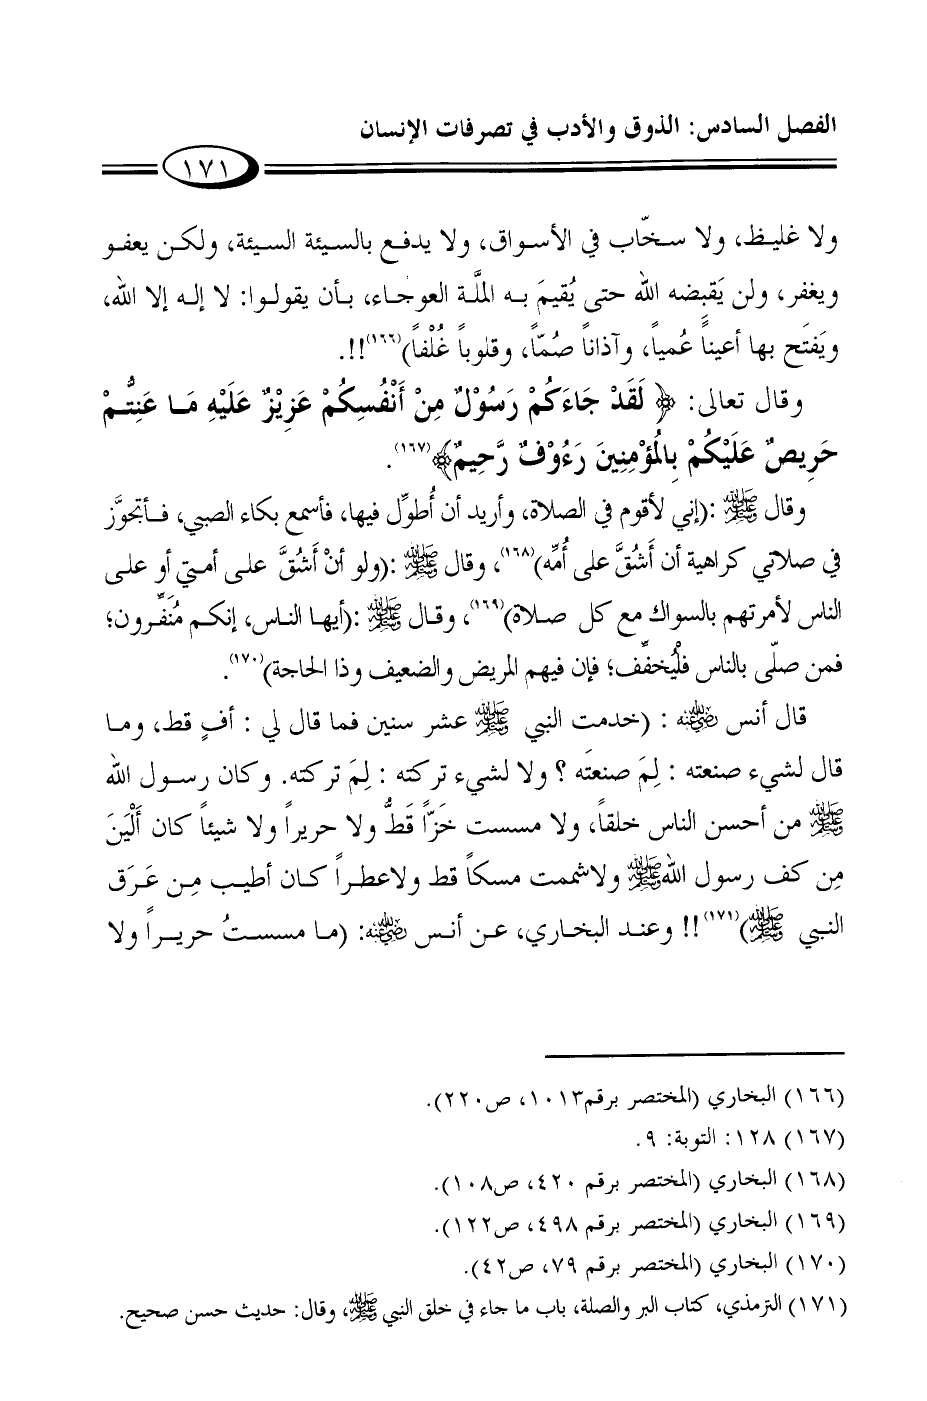 الفصل السادس: الذوق والأدب في تصرفات الإنسان
١٧١
ولا غليظ، ولا سخّاب في الأسواق، ولا يدفع بالسيئة السيئة، ولكن يعفو
ويغفر، ولن يَقبِضه الله حتى يُقيمَ به الملَّة العوجاء، بأن يقولوا: لا إله إلا الله،
ويَفتَح بها أعيناً عُمياً، وآذاناً صُمّاً، وقلوباً غُلْفاً)(١٦٦)!!.
وقال تعالى: ﴿ لَقَدْ جَاءَكُمْ رَسُوْلٌ مِنْ أَنْفُسِكُمْ عَزِيْزٌ عَلَيْهِ مَا عَنِتُّمْ
حَرِيصٌ عَلَيْكُمْ بِالمُؤْمِنِينَ رَءُوْفٌ رَّحِيمٌ﴾(١٦٧).
وقال ﷺ :(إني لأقوم في الصلاة، وأريد أن أُطوِّل فيها، فأسمع بكاء الصبي، فأتجوَّز
في صلاتي كراهية أن أَشُقَّ على أُمِّه)(١٦٨)، وقال ﷺ :(ولو أنْ أَشُقَّ على أمتي أو على
الناس لأمرتهم بالسواك مع كل صلاة)(١٦٩)، وقال ﷺ :(أيها الناس، إنكم مُنَفِّرون؛
فمن صلّى بالناس فلْيُخفِّف؛ فإن فيهم المريض والضعيف وذا الحاجة)(١٧٠).
قال أنس رضي الله عنه : (خدمت النبي ﷺ عشر سنين فما قال لي : أفٍ قط، وما
قال لشيء صنعته : لِمَ صنعتَه ؟ ولا لشيء تركته : لِمَ تركته. وكان رسول الله
ﷺ من أحسن الناس خلقاً، ولا مسست خَزّاً قَطُّ ولا حريراً ولا شيئاً كان أَلْيَنَ
مِن كف رسول اللهﷺ ولاشممت مسكاً قط ولاعطراً كان أطيب مِن عَرَق
النبي ﷺ)(١٧١)!! وعند البخاري، عن أنس رضي الله عنه: (ما مسستُ حريراً ولا
(١٦٦) البخاري (المختصر برقم١٠١٣، ص٢٢٠).
(١٦٧) ١٢٨: التوبة: ٩.
(١٦٨) البخاري (المختصر برقم ٤٢٠، ص١٠٨).
(١٦٩) البخاري (المختصر برقم ٤٩٨، ص١٢٢).
(١٧٠) البخاري (المختصر برقم ٧٩، ص٤٢).
(١٧١) الترمذي، كتاب البر والصلة، باب ما جاء في خلق النبي ﷺ، وقال: حديث حسن صحيح.